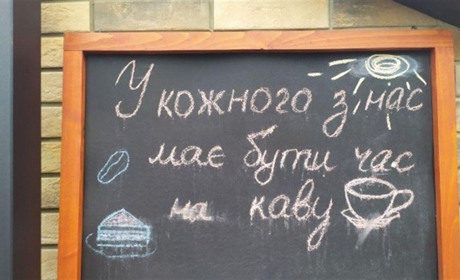 У кожного з нас
має бути час
на каву